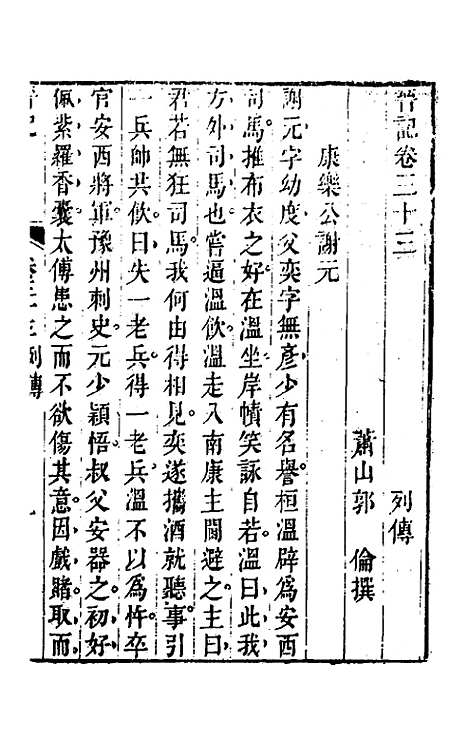 晉記卷二十三
列傳
蕭山郭　倫撰
康樂公謝元
謝元字幼度父奕字無彥少有名譽桓溫辟為安西
司馬推布衣之好在溫坐岸幘笑詠自若溫曰此我
方外司馬也嘗逼溫飲溫走入南康主閤避之主曰
君若無狂司馬我何由得相見奕遂攜酒就聽事引
一兵帥共飲曰失一老兵得一老兵溫不以為忤卒
官安西將軍豫州刺史元少穎悟叔父安器之初好
佩紫羅香囊太傅患之而不欲傷其意因戲賭取而
列傳